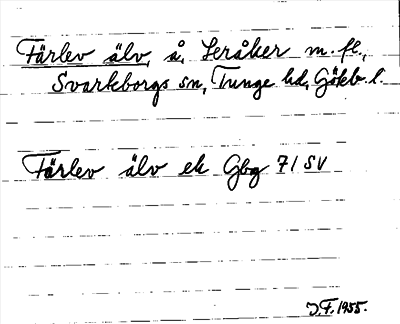 Färlev älv, å, Leråker m.fl.,
Svarteborgs sn, Tunge hd, Göteb. l.
Färlev älv ek Gbg 71 SV
J.F. 1955.